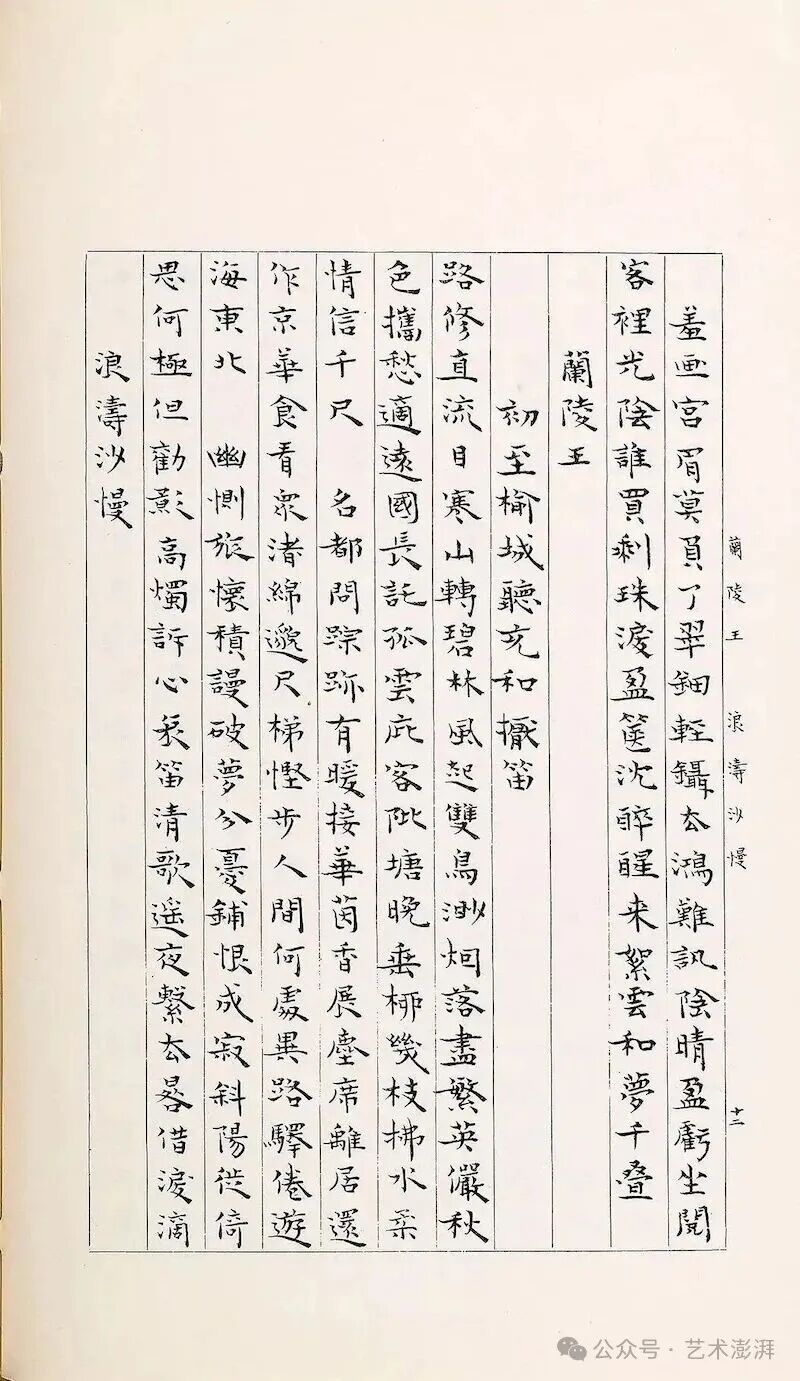 蘭陵王　浪濤沙慢　十二
羞画宮眉莫負了翠鈿輕鑷去鴻難訊陰晴盈虧坐閱
客裡光陰誰買剩珠淚盈篋沈醉醒来絮雲和夢千疊
蘭陵王
初至榆城聽充和擫笛
路修直流日寒山轉碧林風起雙鳥渺炯落盡繁英儼秋
色攜愁適遠國長託孤雲庇客陂塘晚垂栁幾枝拂水柔
情信千尺　名都問踪跡有暖接華茵香展塵席離居還
作京華食看衆渚綿邈尺梯慳步人間何處異路驛倦遊
海東北　幽惻旅懷積謾破夢分憂鋪恨成寂斜陽徙倚
思何極但勸影高燭訴心哀笛清歌遥夜繫去晷借淚滴
浪濤沙慢
公众号·艺术澎湃